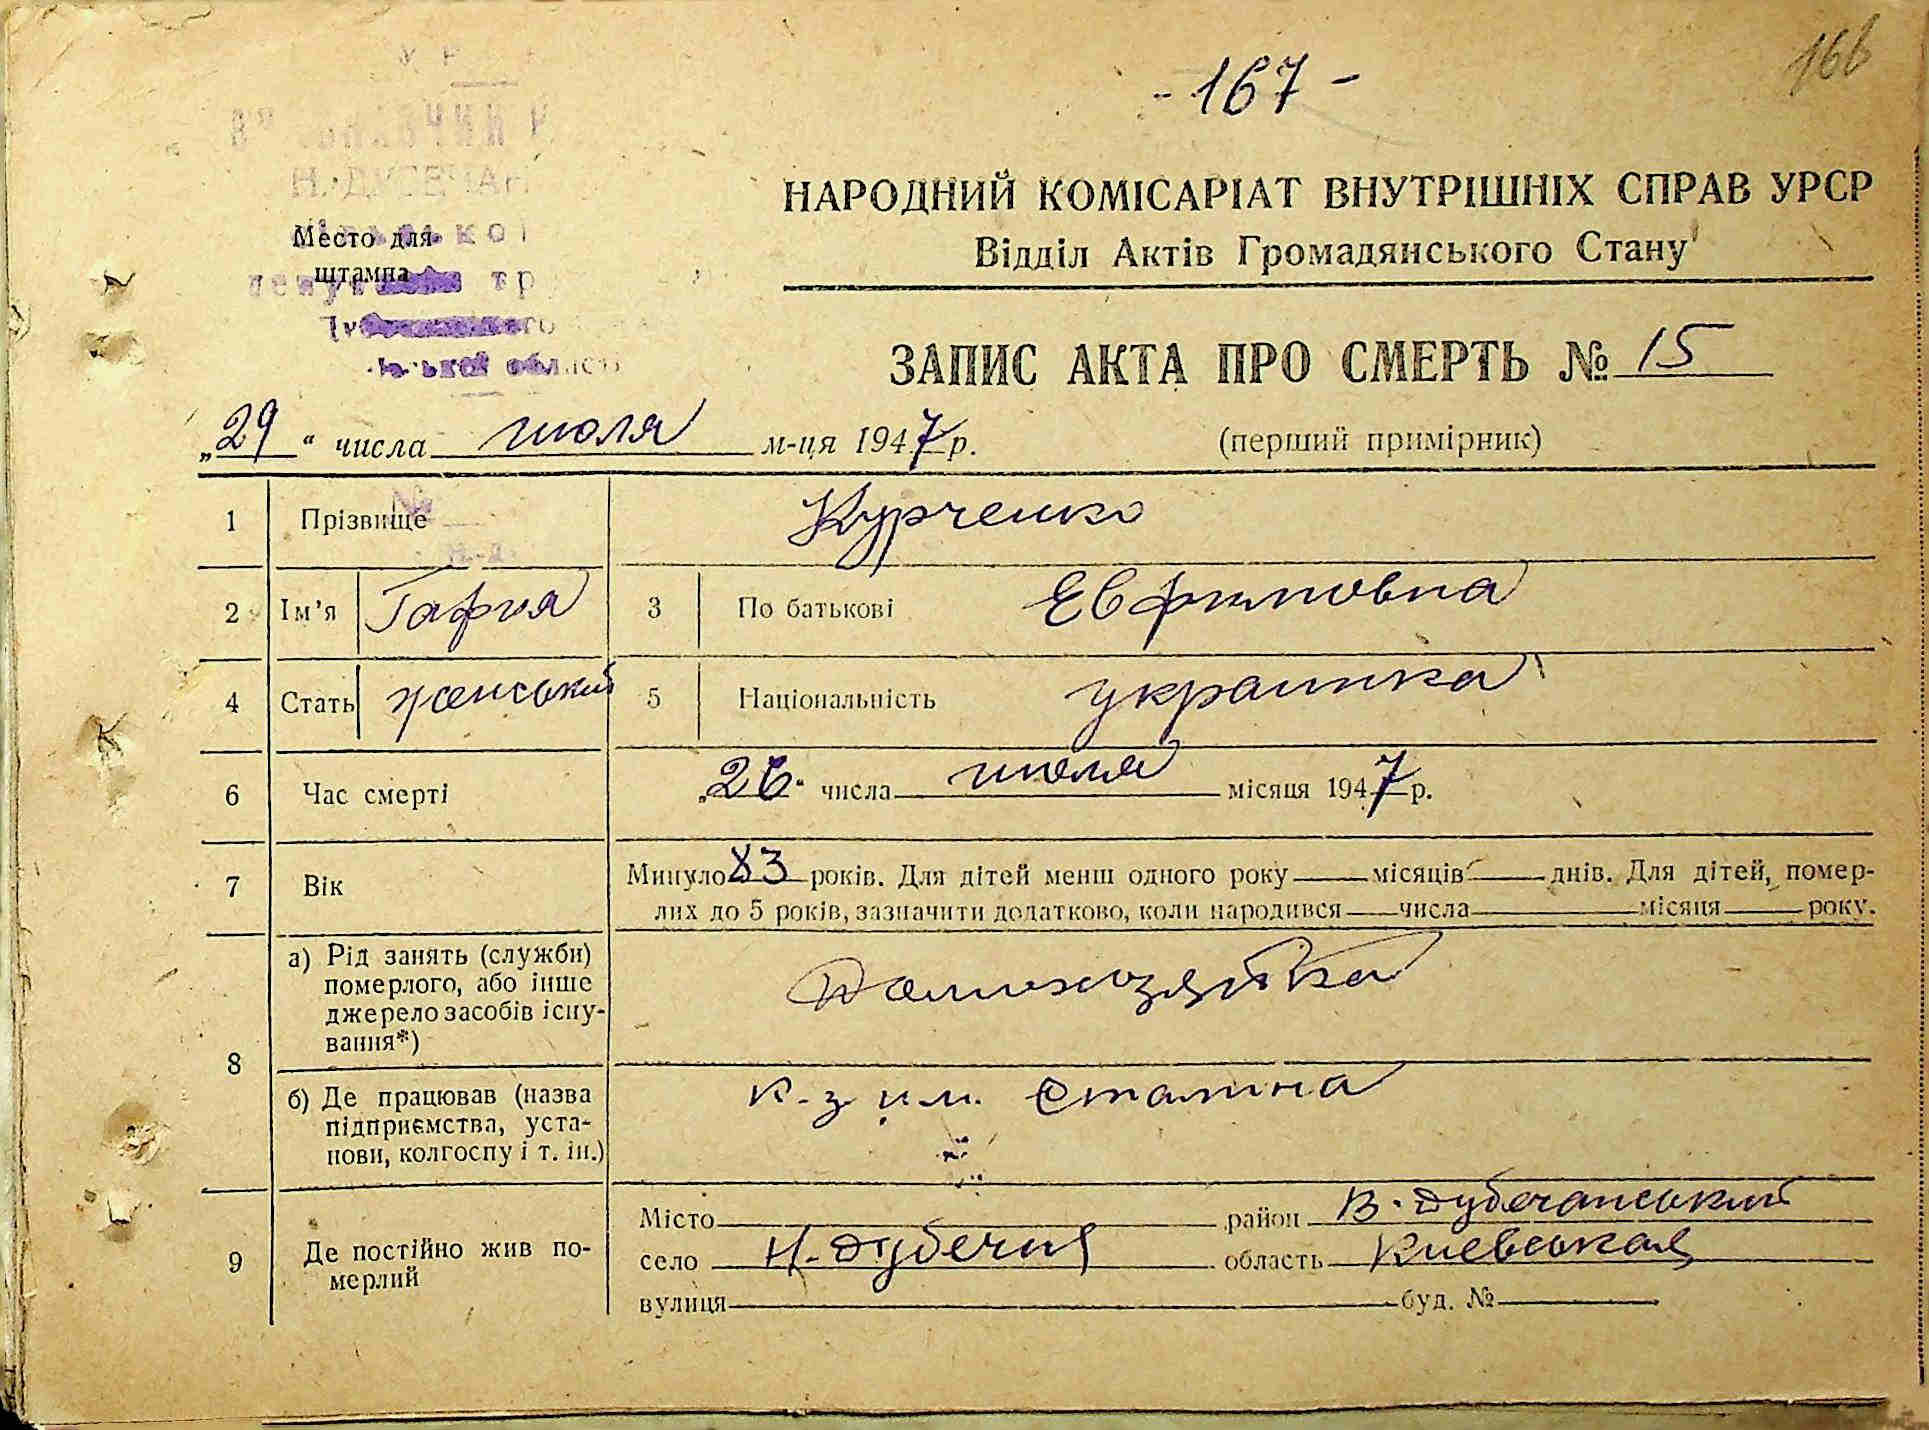 - 167 -
166
Н. ДУБЕЧАН
Место для
штампа
області
НАРОДНИЙ КОМІСАРІАТ ВНУТРІШНІХ СПРАВ УРСР
Відділ Актів Громадянського Стану
ЗАПИС АКТА ПРО СМЕРТЬ № 15
„29“ числа июля м-ця 1947 р. (перший примірник)
1 Прізвище Курченко
2 Ім’я Гафия 3 По батькові Евфимовна
4 Стать женський 5 Національність украинка
6 Час смерті „26“ числа июля місяця 1947 р.
7 Вік Минуло 83 років. Для дітей менш одного року — місяців — днів. Для дітей, помер-
лих до 5 років, зазначити додатково, коли народився — числа — місяця — року.
8 а) Рід занять (служби)
померлого, або інше
джерело засобів існу-
вання*)
Домохозяйка
б) Де працював (назва
підприємства, уста-
нови, колгоспу і т. ін.)
к-з им. Сталина
9 Де постійно жив по-
мерлий
Місто — район В-Дубечанський
село Н-Дубечня область Киевськая
вулиця — буд. № —